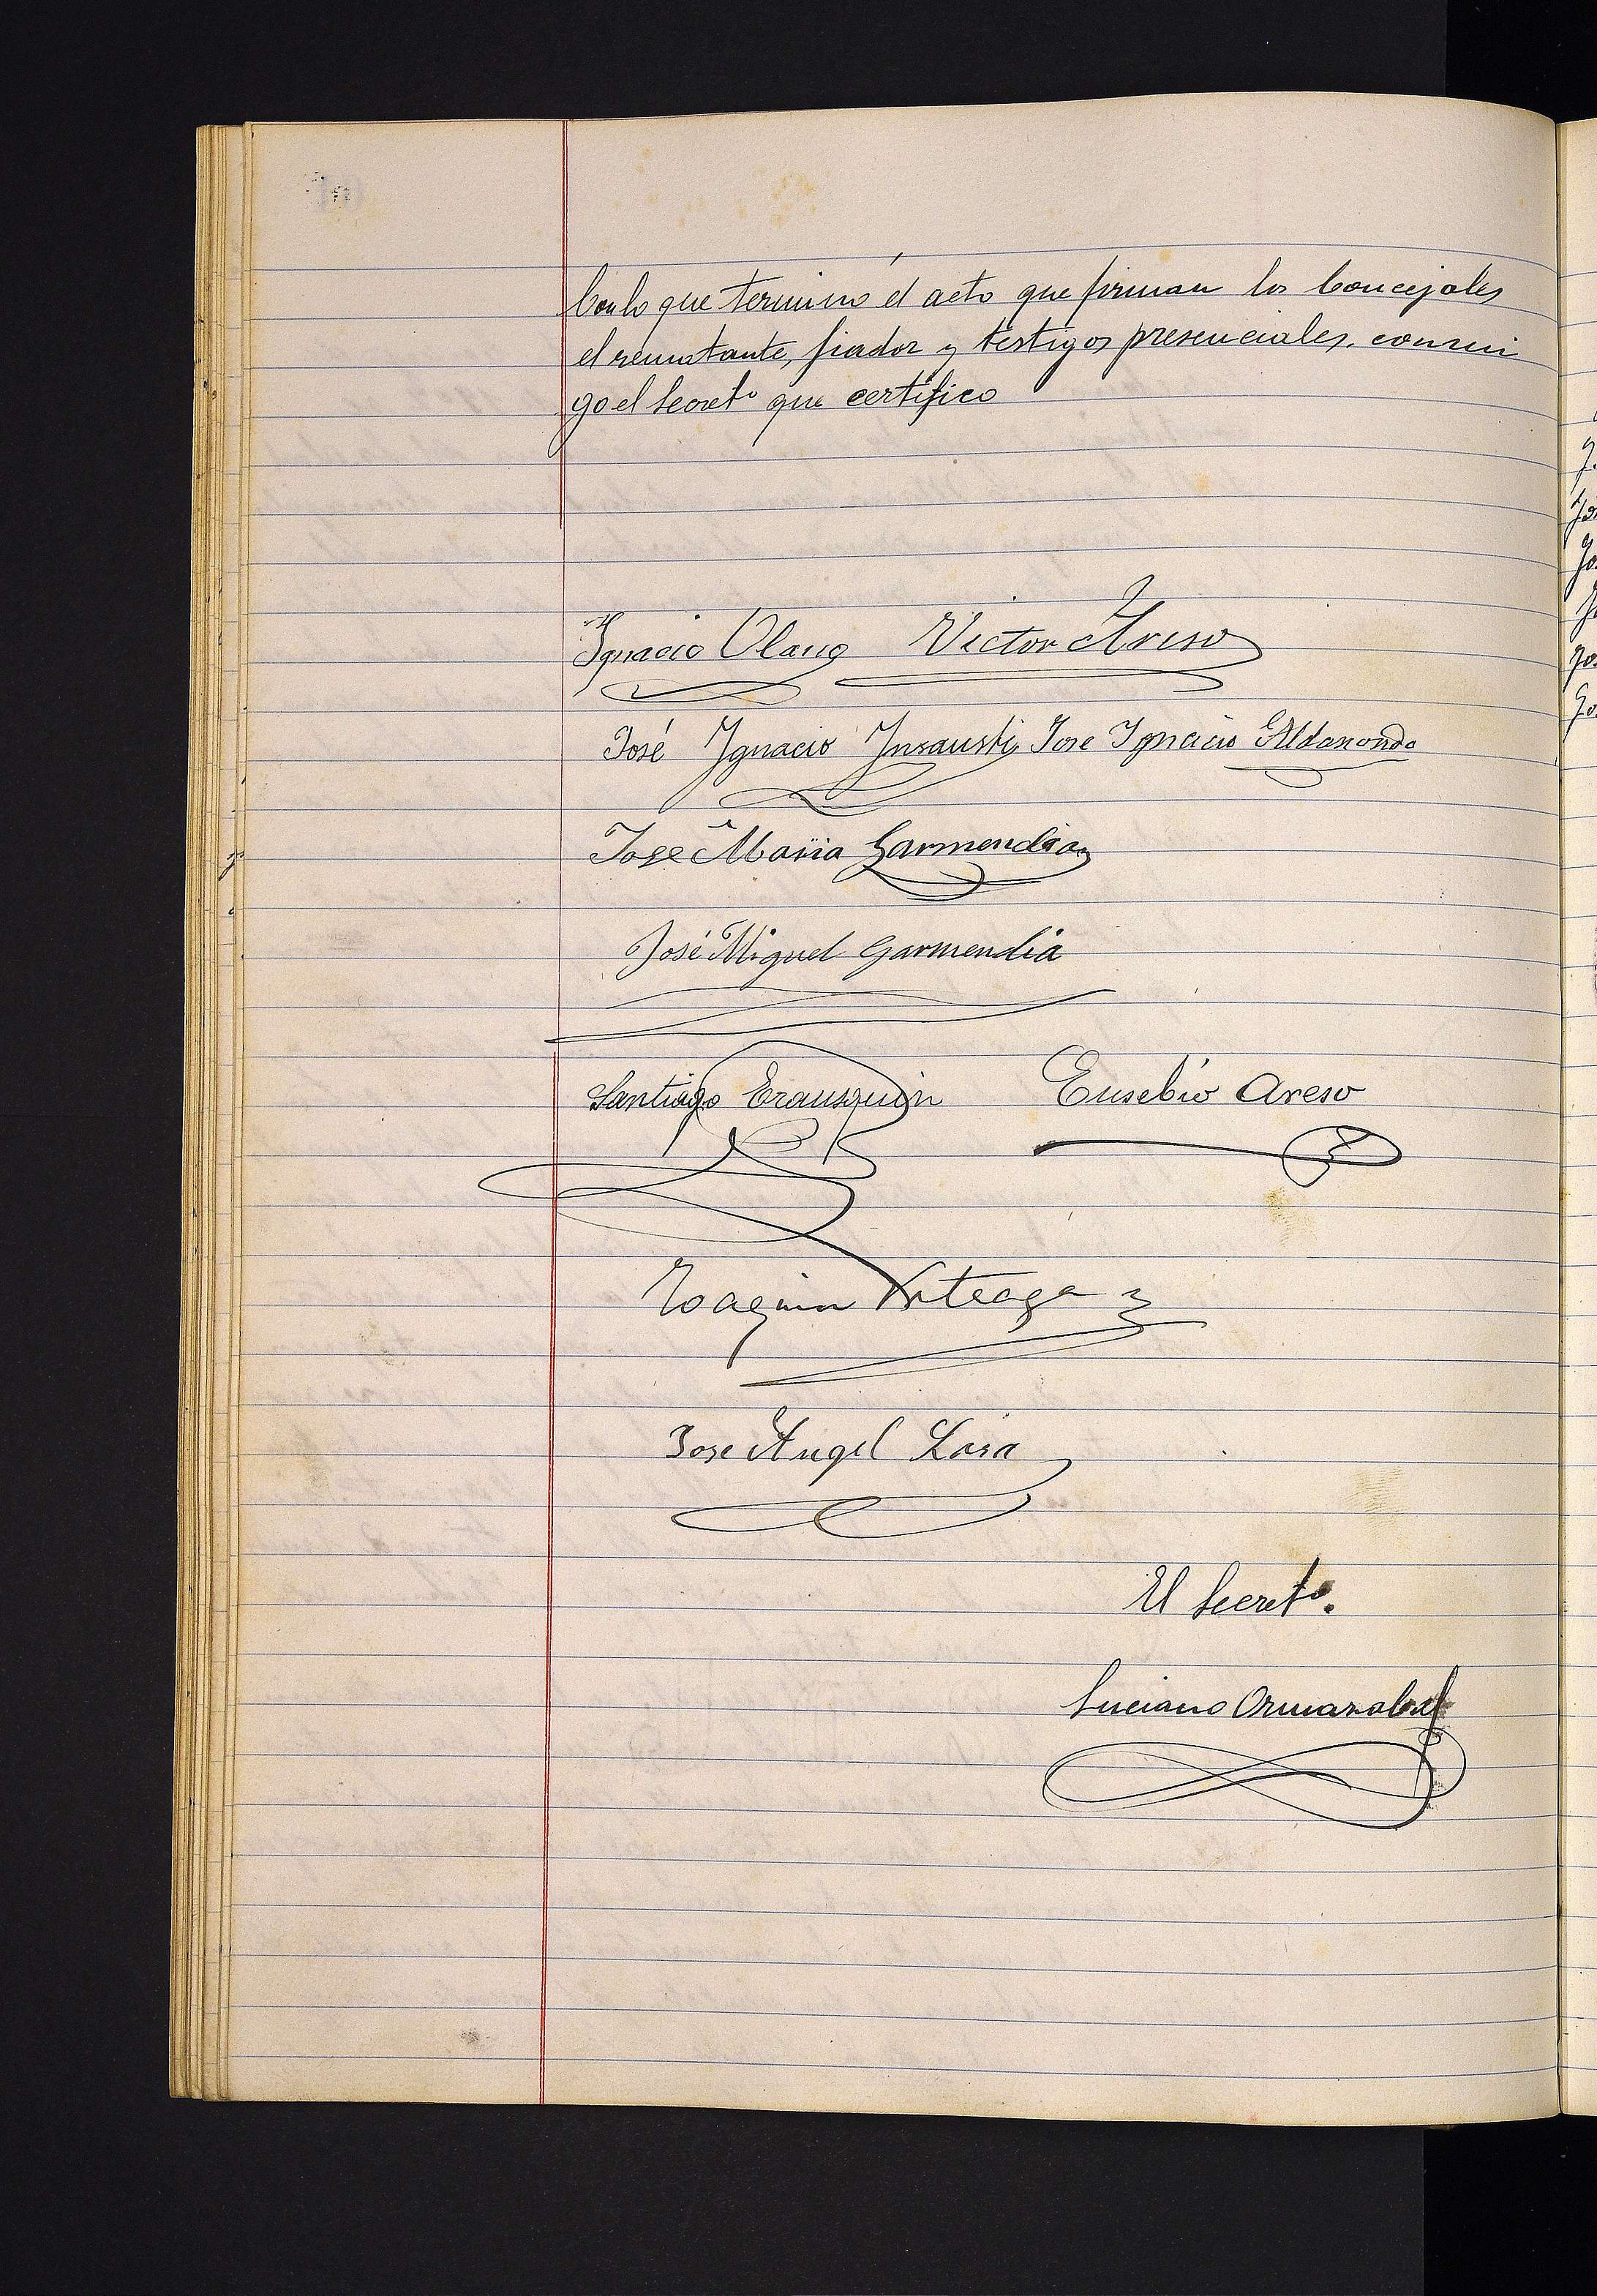 Con lo que terminó el acto que firman los Concejales
el rematante, fiador y testigos presenciales, conmi
go el Secretº que certifico
Ignacio Olano Victor Areso
José Ygnacio Ynsausti Jose Ygnacio Aldanondo
Jose Maria Garmendia
José Miguel Garmendia
Santiago Erausquin Eusebio Areso
Joaquin Arteaga
Jose Angel Lasa
El Secretº.
Luciano Ormazabal